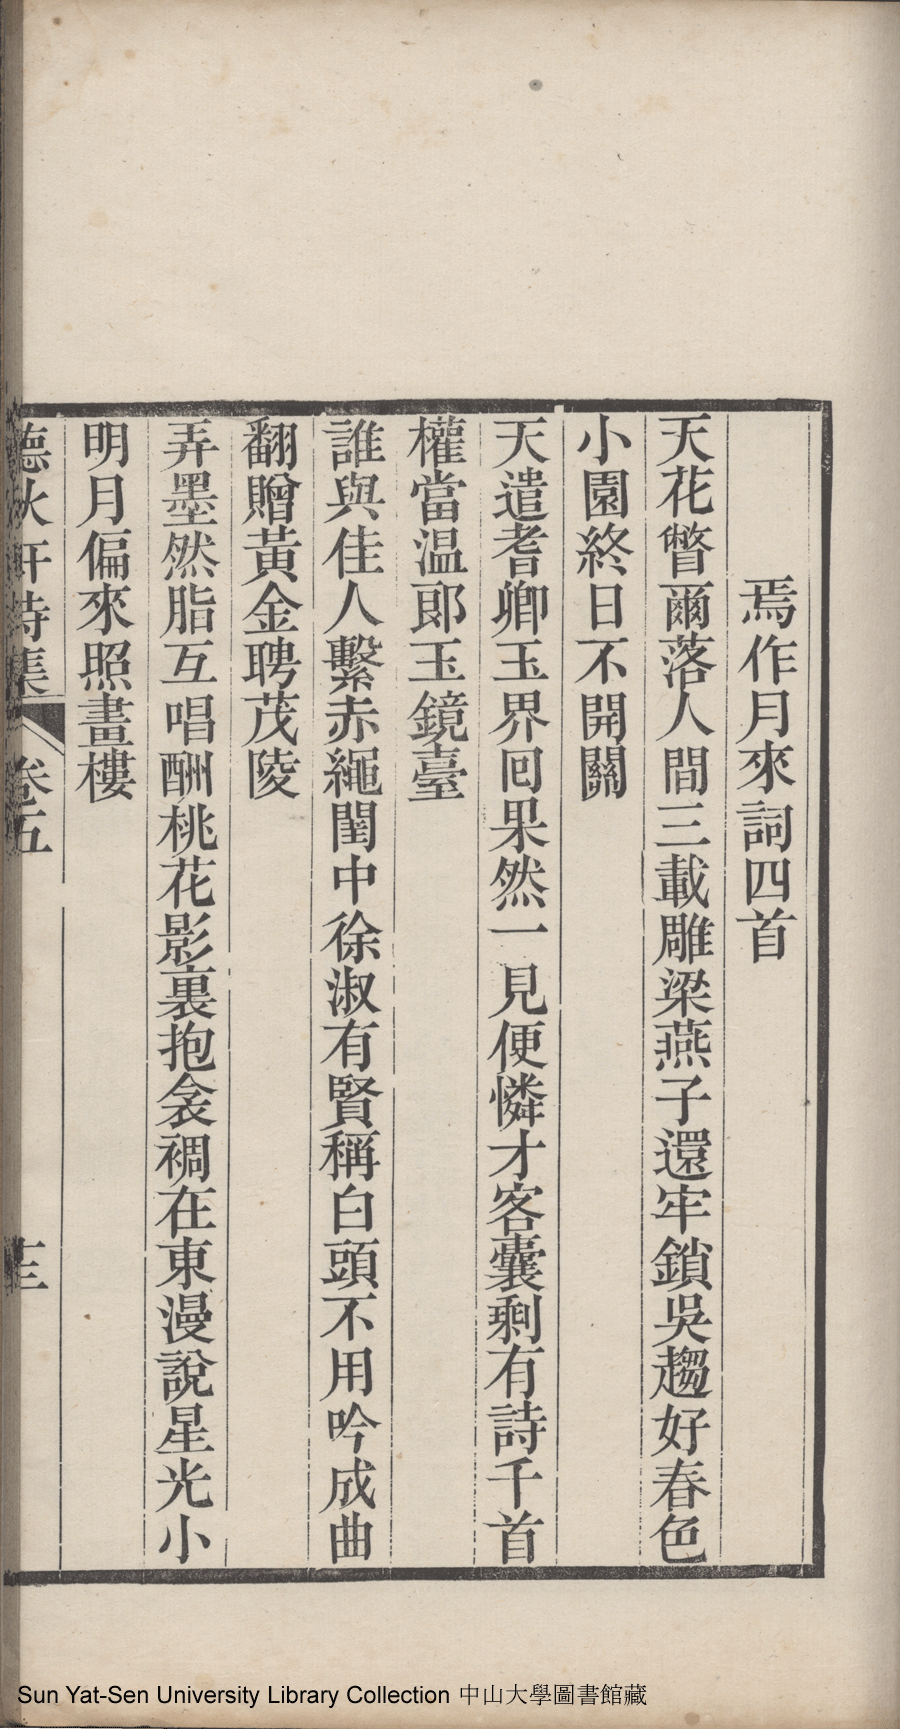 焉作月來詞四首
天花瞥爾落人間三載雕梁燕子還牢鎖吳趨好春色
小園終日不開關
天遣耆卿玉界回果然一見便憐才客囊剩有詩千首
權當温郎玉鏡臺
誰與佳人繫赤繩閨中徐淑有賢稱白頭不用吟成曲
翻贈黃金聘茂陵
弄墨然脂互唱酬桃花影裏抱衾裯在東漫說星光小
明月偏來照畫樓
聽秋軒詩集 卷五 十三
Sun Yat-Sen University Library Collection 中山大學圖書館藏